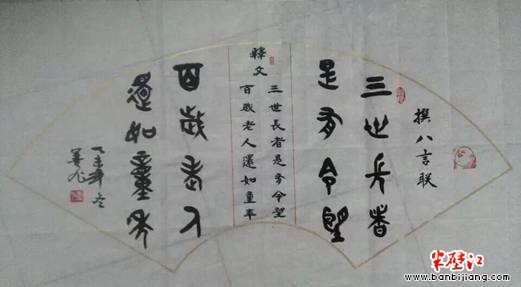 撰八言联
三世長者
是有令望
釋文
三世長者是有令望
百歲老人還如童年
百歲老人
還如童年
乙未年冬
半壁江
www.banbijiang.com